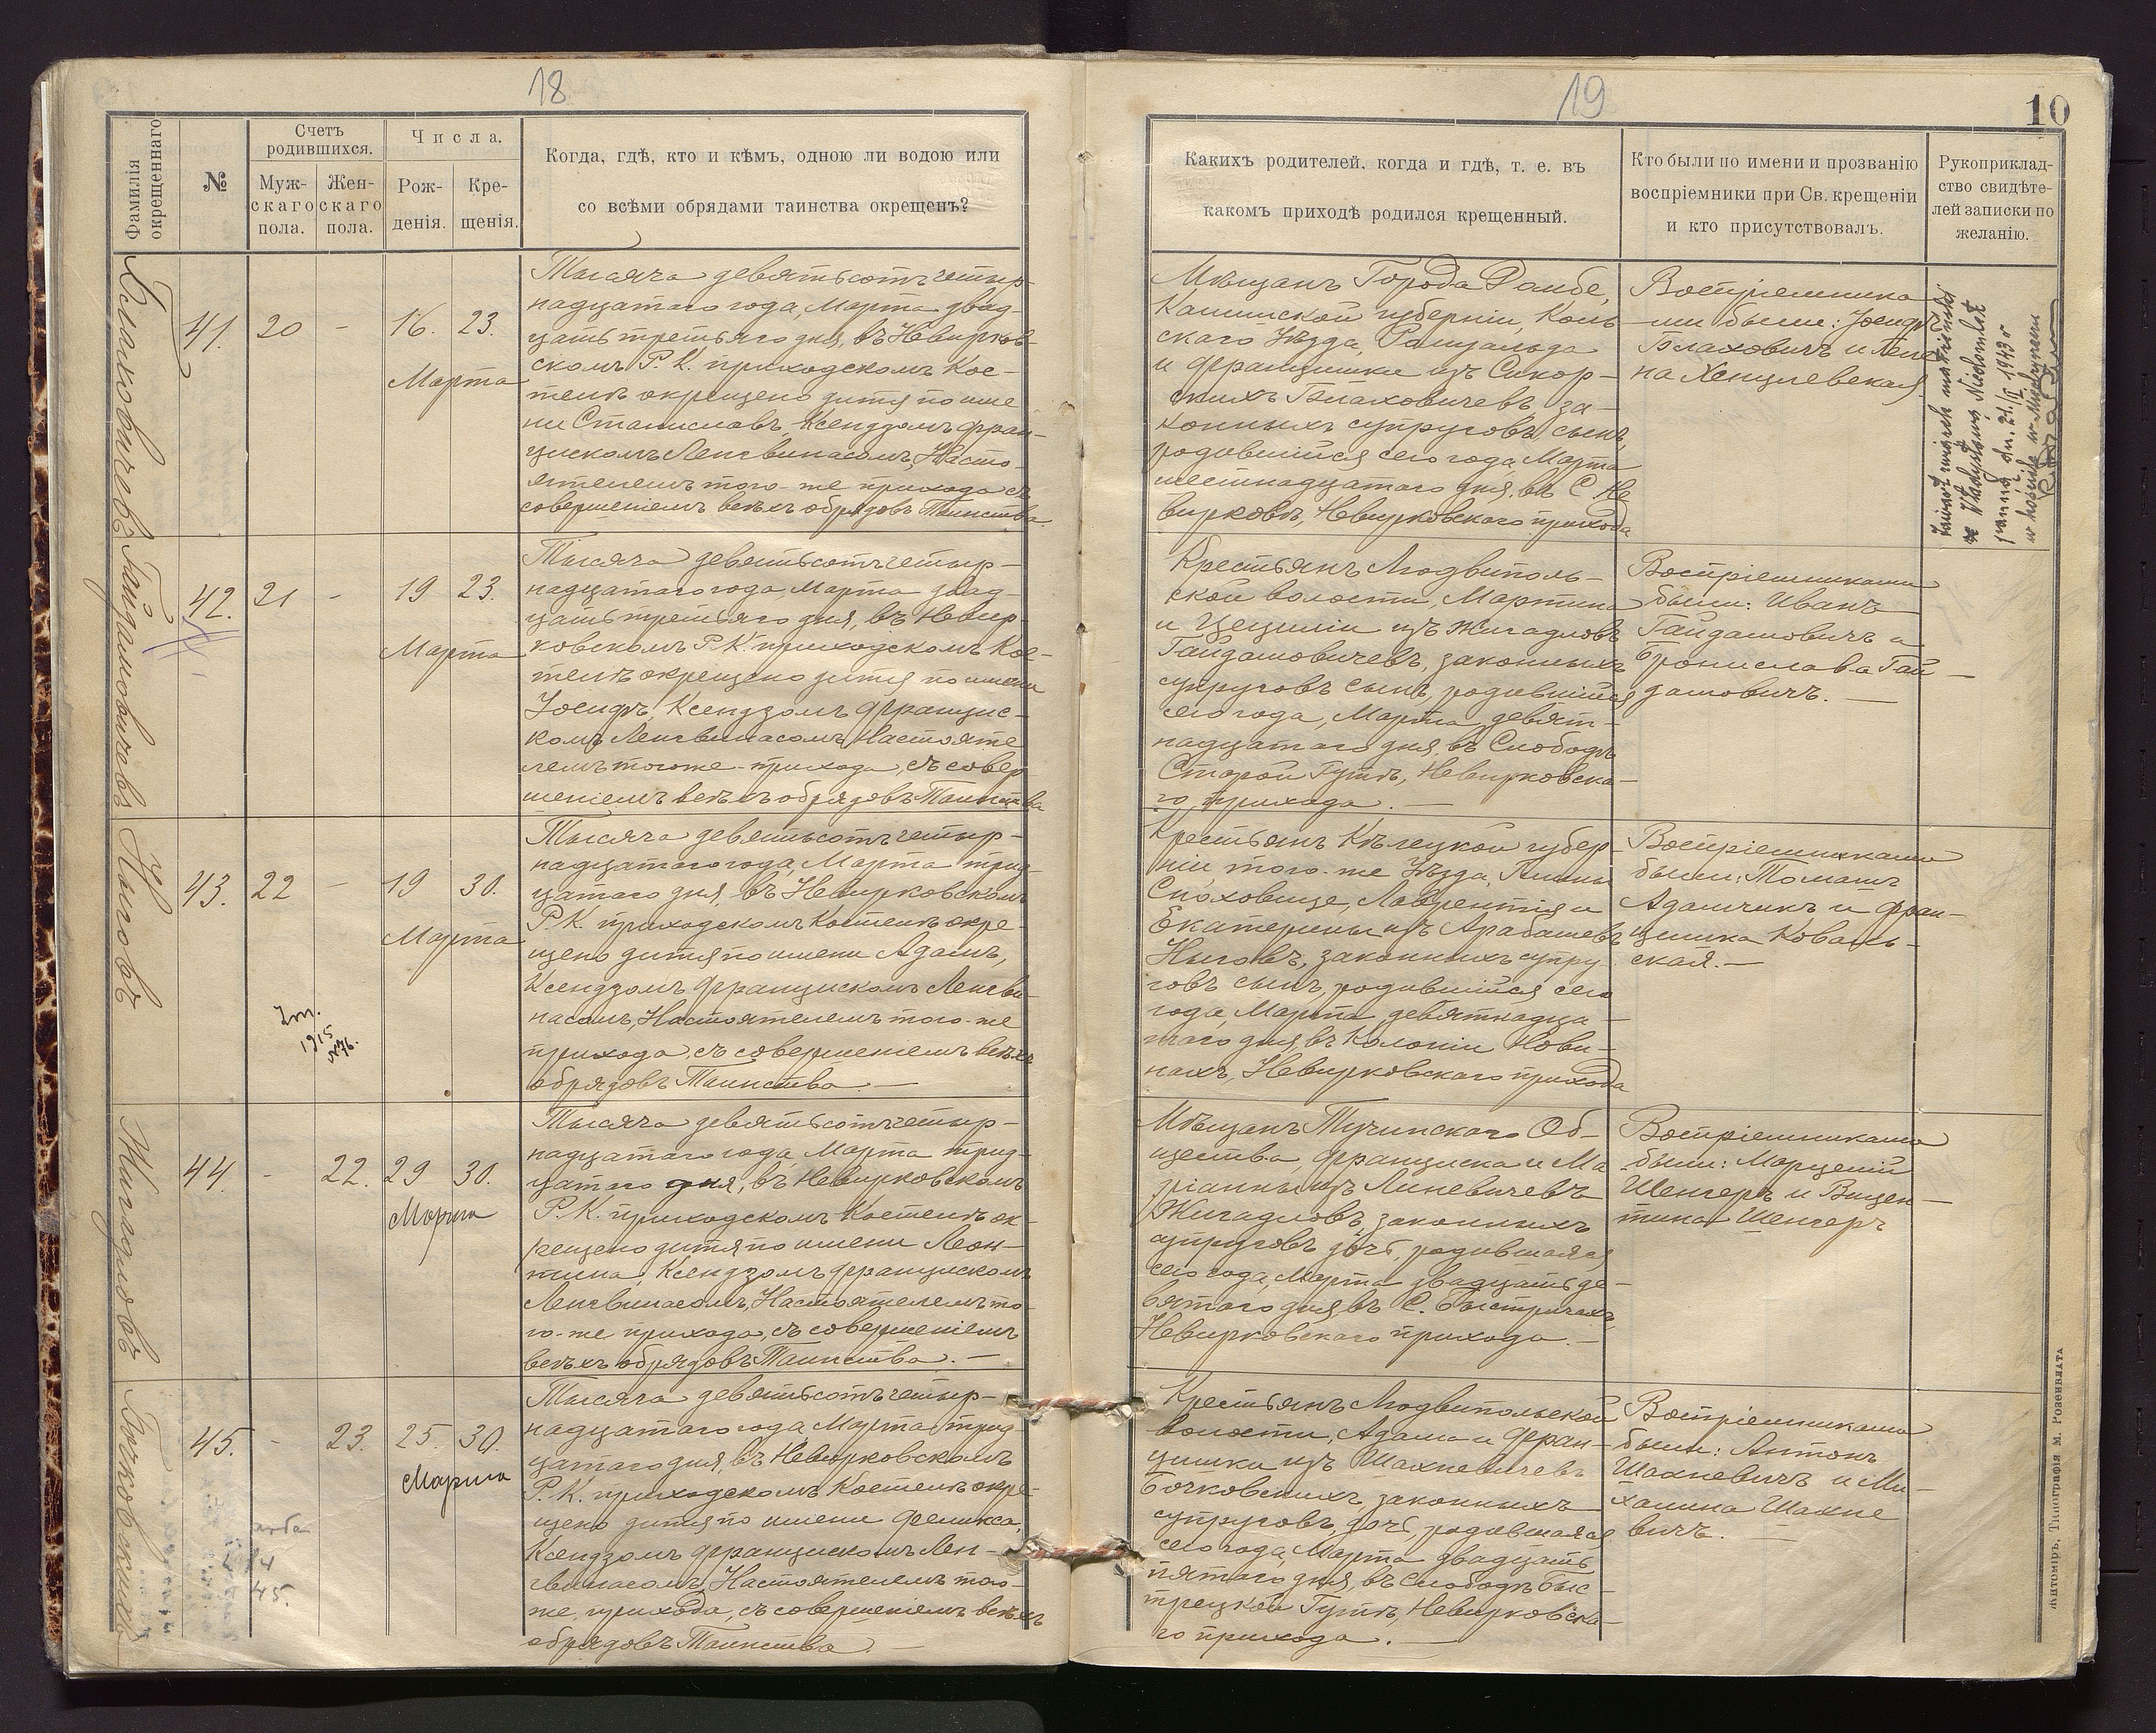 18
Фамилія окрещеннаго
№
Счетъ родившихся.
Мужскаго пола.
Женскаго пола.
Числа.
Рожденія.
Крещенія.
Когда, гдѣ, кто и кѣмъ, одною ли водою или
со всѣми обрядами таинства окрещенъ?
Блаховичевъ
41.
20
-
16.
23.
Марта
Тысяча девятьсотъ четыр-
надцатаго года, Марта двад-
цать третьяго дня, въ Невирков-
скомъ Р. К. приходскомъ Кос-
телѣ окрещено дитя по име
ни Станиславъ, Ксендзомъ Фран-
цискомъ Ленгвинасомъ, Насто-
ятелемъ того-же прихода съ
совершеніемъ всѣхъ обрядовъ Таинства.
Гайдамовичевъ
42.
21
-
19
23.
Марта
Тысяча девятьсотъ четыр-
надцатаго года, Марта двад-
цать третьяго дня, въ Невир-
ковскомъ Р. К. приходскомъ Кос-
телѣ окрещено дитя по имени
Іосифъ, Ксендзомъ Францис-
комъ Ленгвинасомъ Настояте
лемъ того же прихода, съ совер
шеніемъ всѣхъ обрядовъ Таинства
Ныговъ
43.
22
-
19
30.
Марта
Zm.
1915
№76.
Тысяча девятьсотъ четыр-
надцатаго года, Марта трид-
цатаго дня, въ Невирковскомъ
Р. К. приходскомъ Костелѣ окре-
щено дитя по имени Адамъ,
Ксендзомъ Францискомъ Ленгви-
насомъ, Настоятелемъ того-же
прихода съ совершеніемъ всѣхъ
обрядовъ Таинства. —
Жигадловъ
44.
-
22.
29
30.
Марта
Тысяча девятьсотъ четыр-
надцатаго года, Марта трид-
цатаго дня, въ Невирковскомъ
Р. К. приходскомъ Костелѣ ок-
рещено дитя по имени Леон-
тина, Ксендзомъ Францискомъ
Ленгвинасомъ, Настоятелемъ то-
го-же прихода, съ совершеніемъ
всѣхъ обрядовъ Таинства. —
Бочковскихъ
45.
-
23.
25.
30.
Марта
45.
Тысяча девятьсотъ четыр-
надцатаго года, Марта трид-
цатаго дня, въ Невирковскомъ
Р. К. приходскомъ Костелѣ окре-
щено дитя по имени Феликса,
Ксендзомъ Францискомъ Лен-
гвинасомъ, Настоятелемъ того-
же прихода, съ совершеніемъ всѣхъ
обрядовъ Таинства. —
19
10
Какихъ родителей, когда и гдѣ, т. е. въ
какомъ приходѣ родился крещенный.
Кто были по имени и прозванію
воспріемники при Св. крещеніи
и кто присутствовалъ.
Рукоприклад-
ство свидѣте-
лей записки по
желанію.
Мѣщанъ Города Домбе,
Калишской губерніи, Коль
скаго Уѣзда, Ромуальда
и Францишки изъ Сикор-
скихъ Блаховичевъ, за-
конныхъ супруговъ сынъ,
родившійся сего года, Марта
шестнадцатаго дня, въ С. Не
вирковѣ, Невирковскаго прихода
Воспріемника
ми были: Іосифъ
Блаховичъ и Леле
на Хенцлевская
związek małżeński
z Władysławą Niedomlat
panną dn. 21/II 1943 r
w kościele w Międzyrzecu
Крестьянъ Людвиполь-
ской волости, Мартина
и Цециліи изъ Жигадловъ
Гайдамовичевъ, законныхъ
супруговъ сынъ, родившійся
сего года, Марта девят-
надцатаго дня, въ Слободѣ
Старой Гутѣ, Невирковска-
го прихода. —
Воспріемниками
были: Иванъ
Гайдамовичъ и
Бронислава Гай-
дамовичъ. —
Крестьянъ Кѣлецкой губер-
ніи того-же Уѣзда, Гмины
Снoховице, Лаврентія и
Екатерины изъ Арабашевъ
Ныговъ, законныхъ супру-
говъ сынъ, родившійся сего
года, Марта девятнадца-
таго дня, въ Колоніи Нови-
нахъ, Невирковскаго прихода
Воспріемниками
были: Томашъ
Адамчикъ и Фран-
цишка Коваль-
ская. —
Мѣщанъ Тучинскаго Об-
щества, Франциска и Ма
ріанны изъ Линевичевъ
Жигадловъ, законныхъ
супруговъ дочь, родившаяся
сего года, Марта двадцать де-
вятаго дня, въ С. Быстричахъ,
Невирковскаго прихода. —
Воспріемниками
были: Марцелій
Шенгеръ и Вицен-
тина Шенгеръ
Крестьянъ Людвипольской
волости, Адама и Фран-
цишки изъ Шахневичевъ
Бочковскихъ, законныхъ
супруговъ, дочь, родившаяся
сего года, Марта двадцать
пятаго дня, въ Слободѣ Быс-
трецкой Гутѣ, Невирковска-
го прихода. —
Воспріемниками
были: Антонъ
Шахневичъ и Ми-
халина Шахне
вичъ. —
Житомиръ, Типографія М. Розенблата